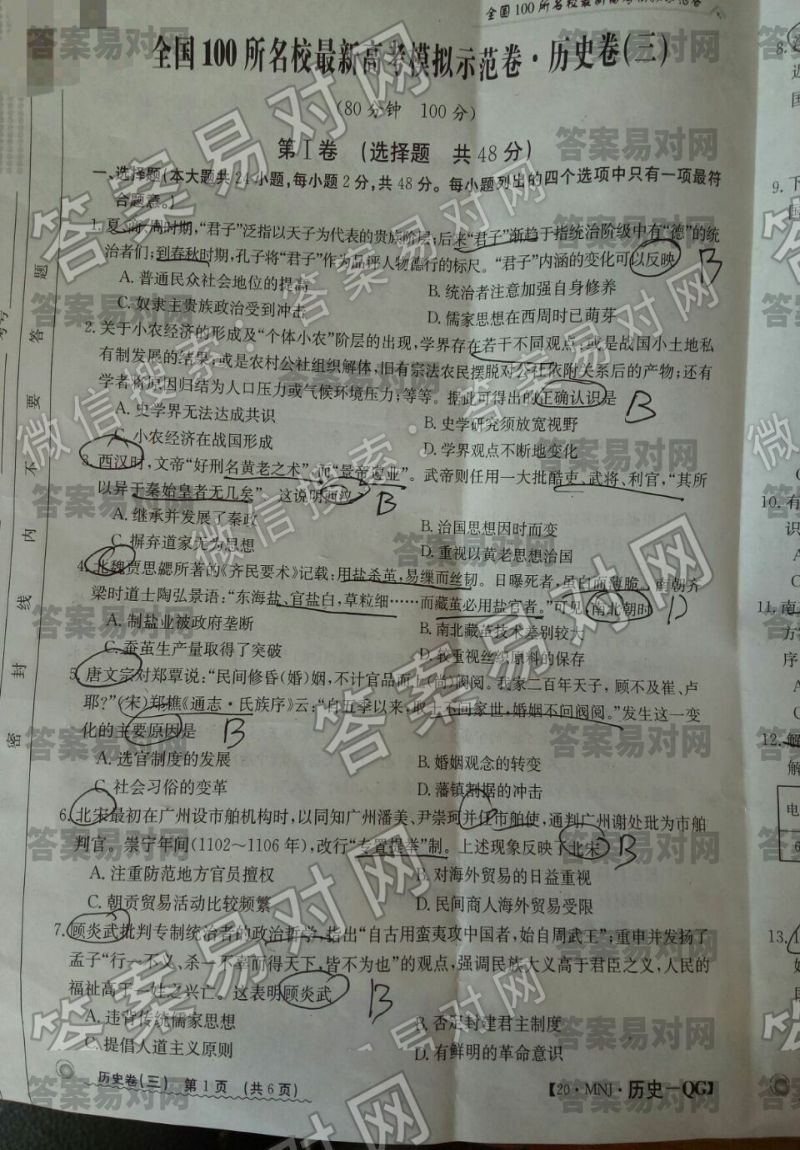 全国100所名校最新高考模拟示范卷·历史卷(三)
(80分钟 100分)
第Ⅰ卷 (选择题 共48分)
一、选择题(本大题共24小题,每小题2分,共48分。每小题列出的四个选项中只有一项最符
合题意。)
1.夏商周时期,“君子”泛指以天子为代表的贵族阶层;后来“君子”渐趋于指统治阶级中有“德”的统
治者们;到春秋时期,孔子将“君子”作为品评人物德行的标尺。“君子”内涵的变化可以反映 B
A.普通民众社会地位的提高
B.统治者注意加强自身修养
C.奴隶主贵族政治受到冲击
D.儒家思想在西周时已萌芽
2.关于小农经济的形成及“个体小农”阶层的出现,学界存在若干不同观点:或是战国小土地私
有制发展的结果;或是农村公社组织解体,旧有宗法农民摆脱对公社依附关系后的产物;还有
学者将原因归结为人口压力或气候环境压力;等等。据此可得出的正确认识是 B
A.史学界无法达成共识
B.史学研究须放宽视野
C.小农经济在战国形成
D.学界观点不断地变化
3.西汉时,文帝“好刑名黄老之术”,而“景帝遵业”。武帝则任用一大批酷吏、武将、利官,“其所
以异于秦始皇者无几矣”。这说明西汉 B
A.继承并发展了秦政
B.治国思想因时而变
C.摒弃道家无为思想
D.重视以黄老思想治国
4.北魏贾思勰所著的《齐民要术》记载:用盐杀茧,易缫而丝韧。日曝死者,虽白而薄脆。南朝齐
梁时道士陶弘景语:“东海盐、官盐白,草粒细……而藏茧必用盐官者。”可见,南北朝时 D
A.制盐业被政府垄断
B.南北藏茧技术差别较大
C.蚕茧生产量取得了突破
D.较重视丝织原料的保存
5.唐文宗对郑覃说:“民间修昏(婚)姻,不计官品而上(尚)阀阅。我家二百年天子,顾不及崔、卢
耶?”(宋)郑樵《通志·氏族序》云:“自五季以来,取士不问家世,婚姻不问阀阅。”发生这一变
化的主要原因是 B
A.选官制度的发展
B.婚姻观念的转变
C.社会习俗的变革
D.藩镇割据的冲击
6.北宋最初在广州设市舶机构时,以同知广州潘美、尹崇珂并任市舶使,通判广州谢处玭为市舶
判官。崇宁年间(1102~1106年),改行“专置提举”制。上述现象反映了北宋 B
A.注重防范地方官员擅权
B.对海外贸易的日益重视
C.朝贡贸易活动比较频繁
D.民间商人海外贸易受限
7.顾炎武批判专制统治者的政治哲学,指出“自古用蛮夷攻中国者,始自周武王”;重申并发扬了
孟子“行一不义、杀一不辜而得天下,皆不为也”的观点,强调民族大义高于君臣之义,人民的
福祉高于一姓之兴亡。这表明顾炎武 B
A.违背传统儒家思想
B.否定封建君主制度
C.提倡人道主义原则
D.有鲜明的革命意识
历史卷(三) 第1页 (共6页)
【20·MNJ·历史—QG】
密 封 线 内 不 要 答 题
答案易对网
微信搜索:答案易对网
9.下
国
10.有
识
11.南
方
序
12.解
解
电
6
13.